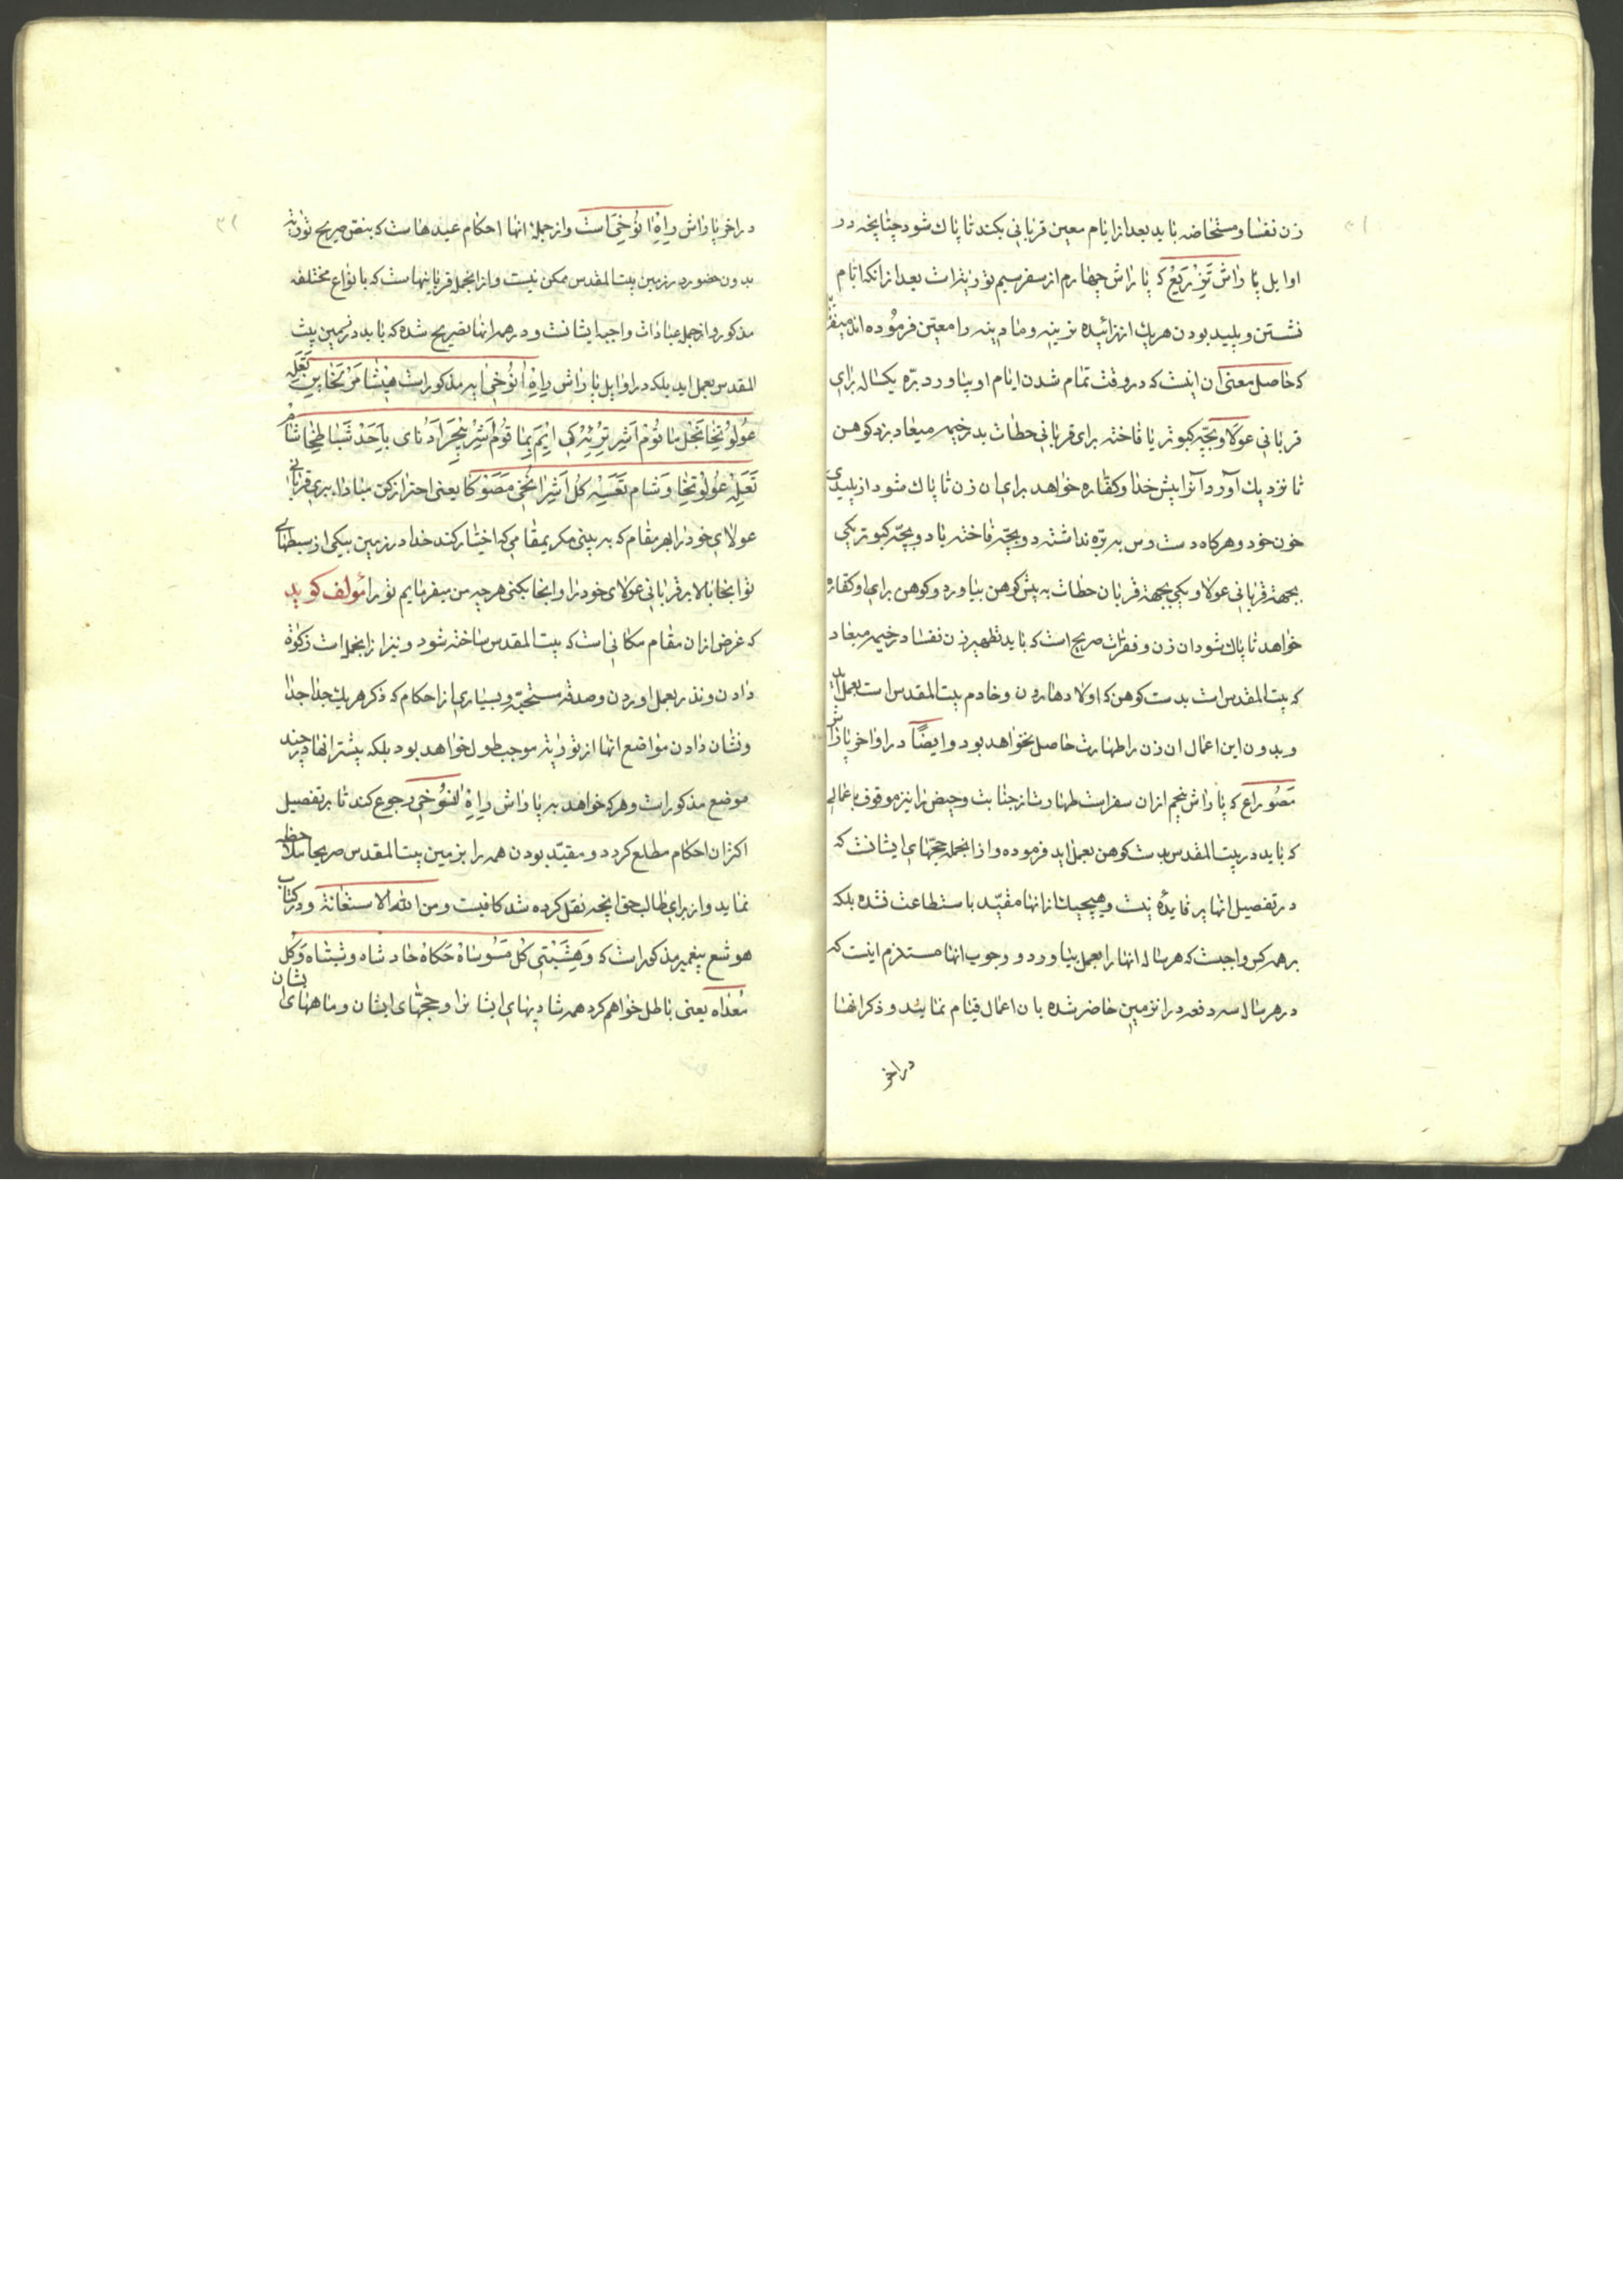 زن نفسا و مستحاضه باید بعد از ایام معین قربانی بکند تا پاک شود چنانچه در
اوایل پاراش تزریع که پاراش چهارم از سفر سیم توریة است بعد از انکه ایام
نشستن و پلید بودن هریک از زائیده نرینه و مادینه را معین فرموده اند میفر
که حاصل معنی ان اینست که در وقت تمام شدن ایام او بیاورد بره یکساله برای
قربانی عولا و بچه کبوتر یا فاخته برای قربانی حطات بدر خیمه میعاد بزد کوهن
تا نزدیک آورد آنرا پیش خدا و کفاره خواهد برای ان زن تا پاک شود از پلیدی
خون خود و هرگاه دست رس به بره نداشته دو بچه فاخته یا دو بچه کبوتر یکی
بجهة قربانی عولا و یکی بجهة قربان حطات به پیش کوهن بیاورد و کوهن برای او کفاره
خواهد تا پاک شود ان زن و فقرات صریح است که باید تطهیر زن نفسا در خیمه میعاد
که بیت المقدس است بدست کوهن که اولاد هارون و خادم بیت المقدس است بعمل اید
و بدون این اعمال ان زن را طهارت حاصل نخواهد بود و ایضا در اواخر پاراش
مصوراع که پاراش پنجم از ان سفر است طهارت از جنابت و حیض را نیز موقوف باعمالی
که باید در بیت المقدس بدست کوهن بعمل اید فرموده و از انجمله حجهای ایشانست که
در تفصیل انها پر فایده نیست و هیچیک از انها مقید باستطاعت نشده بلکه
بر همه کس واجبست که هر ساله انها را بعمل بیاورد و وجوب انها مستلزم اینست که
در هر سال سه دفعه در ان زمین حاضر شده بان اعمال قیام نمایند و ذکر انها
در اخر
در اخر پاراش راه انوخی است و از جمله انها احکام عیدهاست که بنص صریح توریة
بدون حضور در زمین بیت المقدس ممکن نیست و از انجمله قربانیهاست که بانواع مختلفه
مذکور و از جمله عبادات واجبه ایشانست و در همه انها تصریح شده که باید در زمین بیت
المقدس بعمل اید بلکه در اوایل پاراش راه انوخی باین مذکور است هیشامر لخا پن تعله
عولوتخا بخل ماقوم اشر ترئه کی ایم بماقوم اشر یبحر ادنای باحد شباطخا شام
تعله عولوتخا وشام تعسه کل اشر انخی مصوکا یعنی احتراز کن مبادا ببری قربانی
عولای خود را بهر مقام که به بینی مگر بمقامی که اختیار کند خدا در زمین بیکی از سبطهای
تو انجا بالا بر قربانی عولای خود را و انجا بکنی هر چه من میفرمایم تو را مولف گوید
که غرض از ان مقام مکانی است که بیت المقدس ساخته شود و نیز از انجمله است زکوة
دادن و نذر بعمل اوردن و صدقه مستحبه و بسیاری از احکام که ذکر هریک جدا جدا
و نشان دادن مواضع انها از توریة موجب طول خواهد بود بلکه بیشتر انها در چند
موضع مذکور است و هرکه خواهد به پاراش راه انوخی رجوع کند تا بر تفصیل
اکثر ان احکام مطلع گردد و مقید بودن همه را بزمین بیت المقدس صریحا ملاحظه
نماید و از برای طالب حق انچه نقل کرده شد کافیست ومن الله الاستعانة و در کتاب
هوشع پیغمبر مذکور است که وهشبتی کل مسوساه حکاه حادشاه وشبتاه وکل
معداه یعنی باطل خواهم کرد همه شادیهای ایشانرا و حجهای ایشان و ماههای ایشان